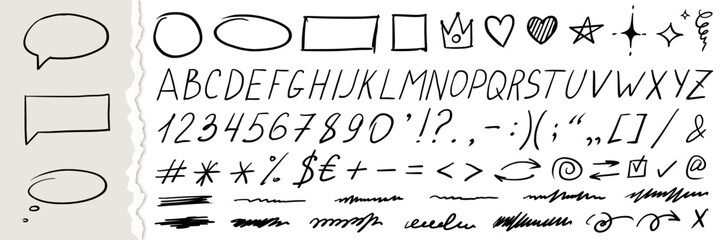 ABCDEFGHIJKLMNOPQRSTUVWXYZ
1234567890'!?.,-:)(;“„[]/&
#**%$€+-=<>✓@
x